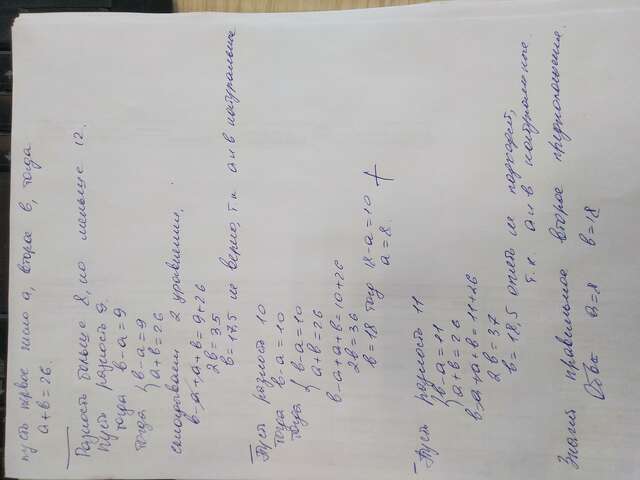 пусть первое число а, второе в, тогда
а+в=26.
Разность больше 8, но меньше 12.
Пусть разность 9.
тогда в-а=9
тогда { в-а=9
а+в=26
складываем 2 уравнения.
в-а+а+в=9+26
2в=35
в=17,5 не верно, т.к. а и в натуральные
Пусть разность 10
тогда в-а=10
тогда { в-а=10
а+в=26
в-а+а+в=10+26
2в=36
в=18 тогд 18-а=10
а=8.
Пусть разность 11
{ в-а=11
а+в=26
в-а+а+в=11+26
2в=37
в=18,5 опять не подходит,
т.к. а и в натуральные.
Значит правильное второе предположение.
Ответ: а=8 в=18